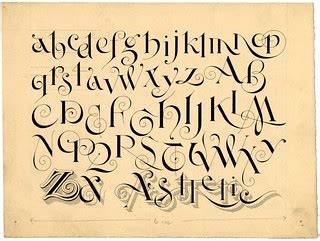 abcdefghijklmnop
qrstuvwxyz AB
CDEFGHIJKLM
NOPQRSTUVWXY
Z& Æsthetic